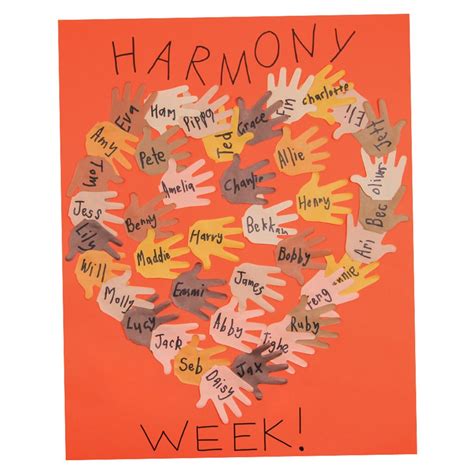 HARMONY
Eva
Ham
Pippa
Ted
Grace
charlotte
Jett
Amy
Pete
Allie
Tom
Amelia
Charlie
Jess
Benny
Henry
Bec
Lily
Maddie
Harry
Bekkan
Ari
Will
Bobby
Molly
Emmi
James
Ferg
Lucy
Abby
Ruby
Jack
Tighe
Seb
Jax
Daisy
WEEK!